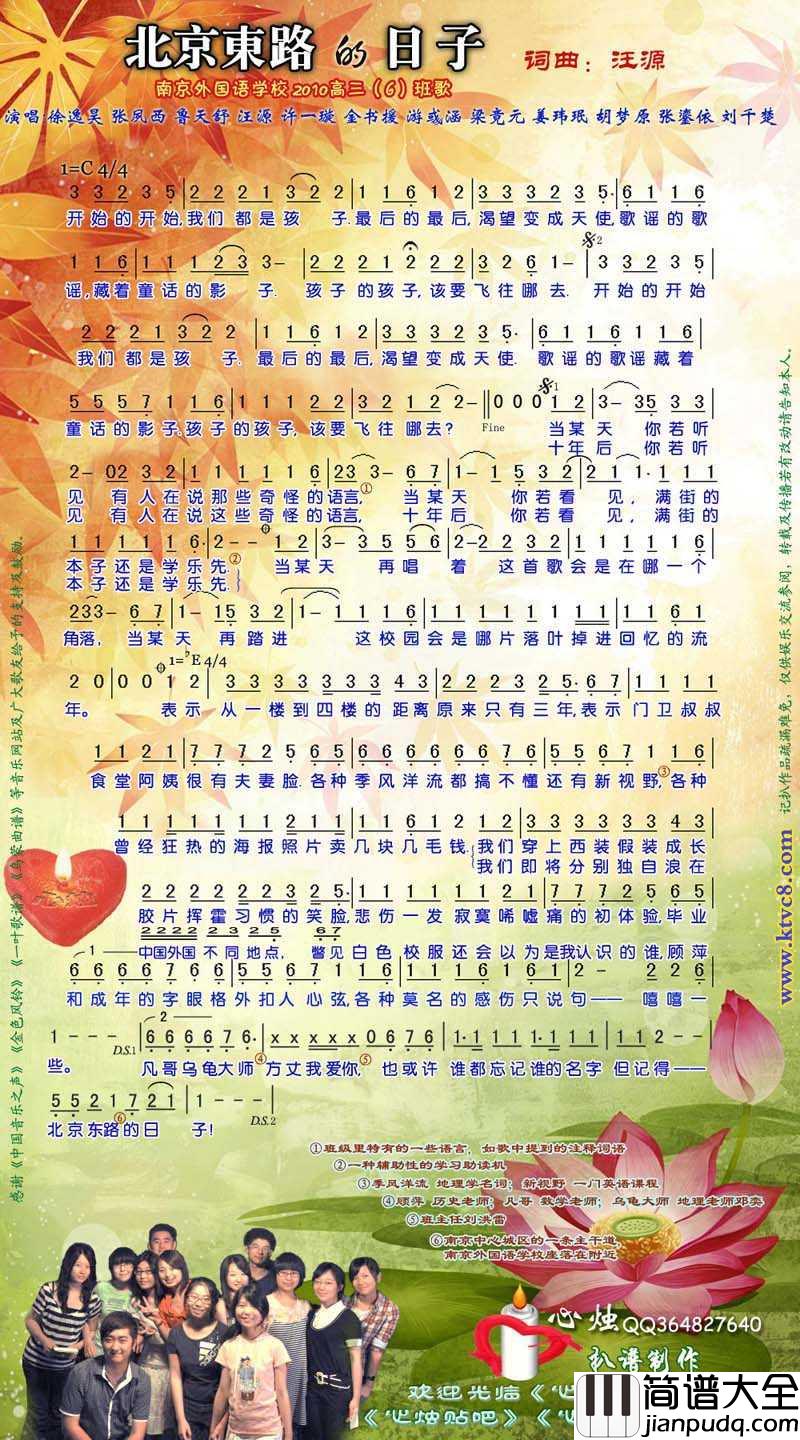 北京東路的日子
词曲：汪源
南京外国语学校2010高三（6）班歌
演唱 徐逸昊 张凤西 鲁天舒 汪源 许一璇 金书援 游彧涵 梁竟元 姜玮珉 胡梦原 张鎏依 刘千楚
1=C 4/4
3 3 2 3 5 | 2 2 2 1 3 2 2 | 1 1 6 1 2 | 3 3 3 2 3 5· | 6 1 1 1 6
开始的开始,我们 都是孩 子.最后的最后,渴望变成天使,歌谣的歌
1 1 6 | 1 1 1 2 3 3– | 2 2 2 1 2 1 2 | 3 2 6 1– | 3 3 2 3 5
谣,藏着童话的影 子. 孩子的孩子,该要飞往哪去. 开始的开始
2 2 2 1 3 2 2 | 1 1 6 1 2 | 3 3 3 2 3 5· | 6 1 1 1 6 1 1 6
我们 都是孩 子. 最后的最后,渴望变成天使. 歌谣的歌谣藏着
5 5 5 7 1 1 6 | 1 1 1 2 2 | 3 2 1 2 2– | 0 0 0 1 2 | 3– 35 3 3
童话的影子.孩子的孩子,该要飞往哪去? Fine 当某天 你若听
十年后 你若听
2– 02 3 2 | 1 1 1 1 1 6 | 23 3– 6 7 | 1– 1 5 3 2 | 2– 1 1 1 1
见 有人在说那些奇怪的语言, ① 当某天 你若看见，满街的
见 有人在说这些奇怪的语言, 十年后 你若看见，满街的
1 1 1 1 1 6· | 2– – 1 2 | 3– 3 5 4 6 | 2–2 2 3 2 | 1 1 1 1 1 6
本子还是学乐先. ② 当某天 再唱着 这首歌会是在哪一个
本子还是学乐先.
233– 6 7 | 1– 15 3 2 | 1– 1 1 1 6 | 1 1 1 1 1 1 1 1 | 1 1 6 1
角落，当某天 再踏进 这校园会是哪片落叶掉进回忆的流
1=♭E 4/4
2 0 | 0 0 1 2 | 3 3 3 3 3 3 4 3 | 2 2 2 2 2 1 2 | 3 3 3 3
年。 表示 从一楼到四楼的距离原来只有三年,表示门卫叔叔
1 1 2 1 | 7 7 7 2 5 6 5 | 6 6 6 6 6 7 6 | 5 5 5 6 7 1 1 6
食堂阿姨很有夫妻脸.各种季风洋流都搞不懂还有新视野, ③ 各种
曾经狂热的海报照片卖几块几毛钱.我们穿上西装假装成长
我们即将分别独自浪在
胶片挥霍习惯的笑脸,悲伤一发寂寞唏嘘痛的初体验,毕业
中国外国不同地点，瞥见白色校服还会以为是我认识的谁,顾萍
和成年的字眼格外扣人心弦,各种莫名的感伤只说句—— 嘻嘻一
1 – – D.S.1 | 6 6 6 6 7 6· | x x x x x 0 6 7 6
些。 凡哥乌龟大师 ④ 方丈我爱你, ⑤ 也或许 谁都忘记谁的名字 但记得——
5 5 2 1 7 2 1 | 1 – – – D.S.2
北京东路的日 子! ⑥
①班级里特有的一些语言，如歌中提到的注释词语
②一种辅助性的学习助读机
③季风洋流 地理学名词；新视野 一门英语课程
④顾萍 历史老师；凡哥 数学老师；乌龟大师 地理老师邓奕
⑤班主任刘洪雷
⑥南京中心城区的一条主干道，
南京外国语学校座落在附近
心烛QQ364827640
扒谱制作
欢迎光临《心
《心烛贴吧》《心
简谱大全
jianpudq.com
感谢《中国音乐之声》《金色风铃》《一叶歌谱》《乌蒙曲谱》等音乐网站及广大歌友给予的支持及鼓励.
www.ktvc8.com 记扒作品疏漏难免，仅供娱乐交流参阅，转载及传播若有改动请告知本人。